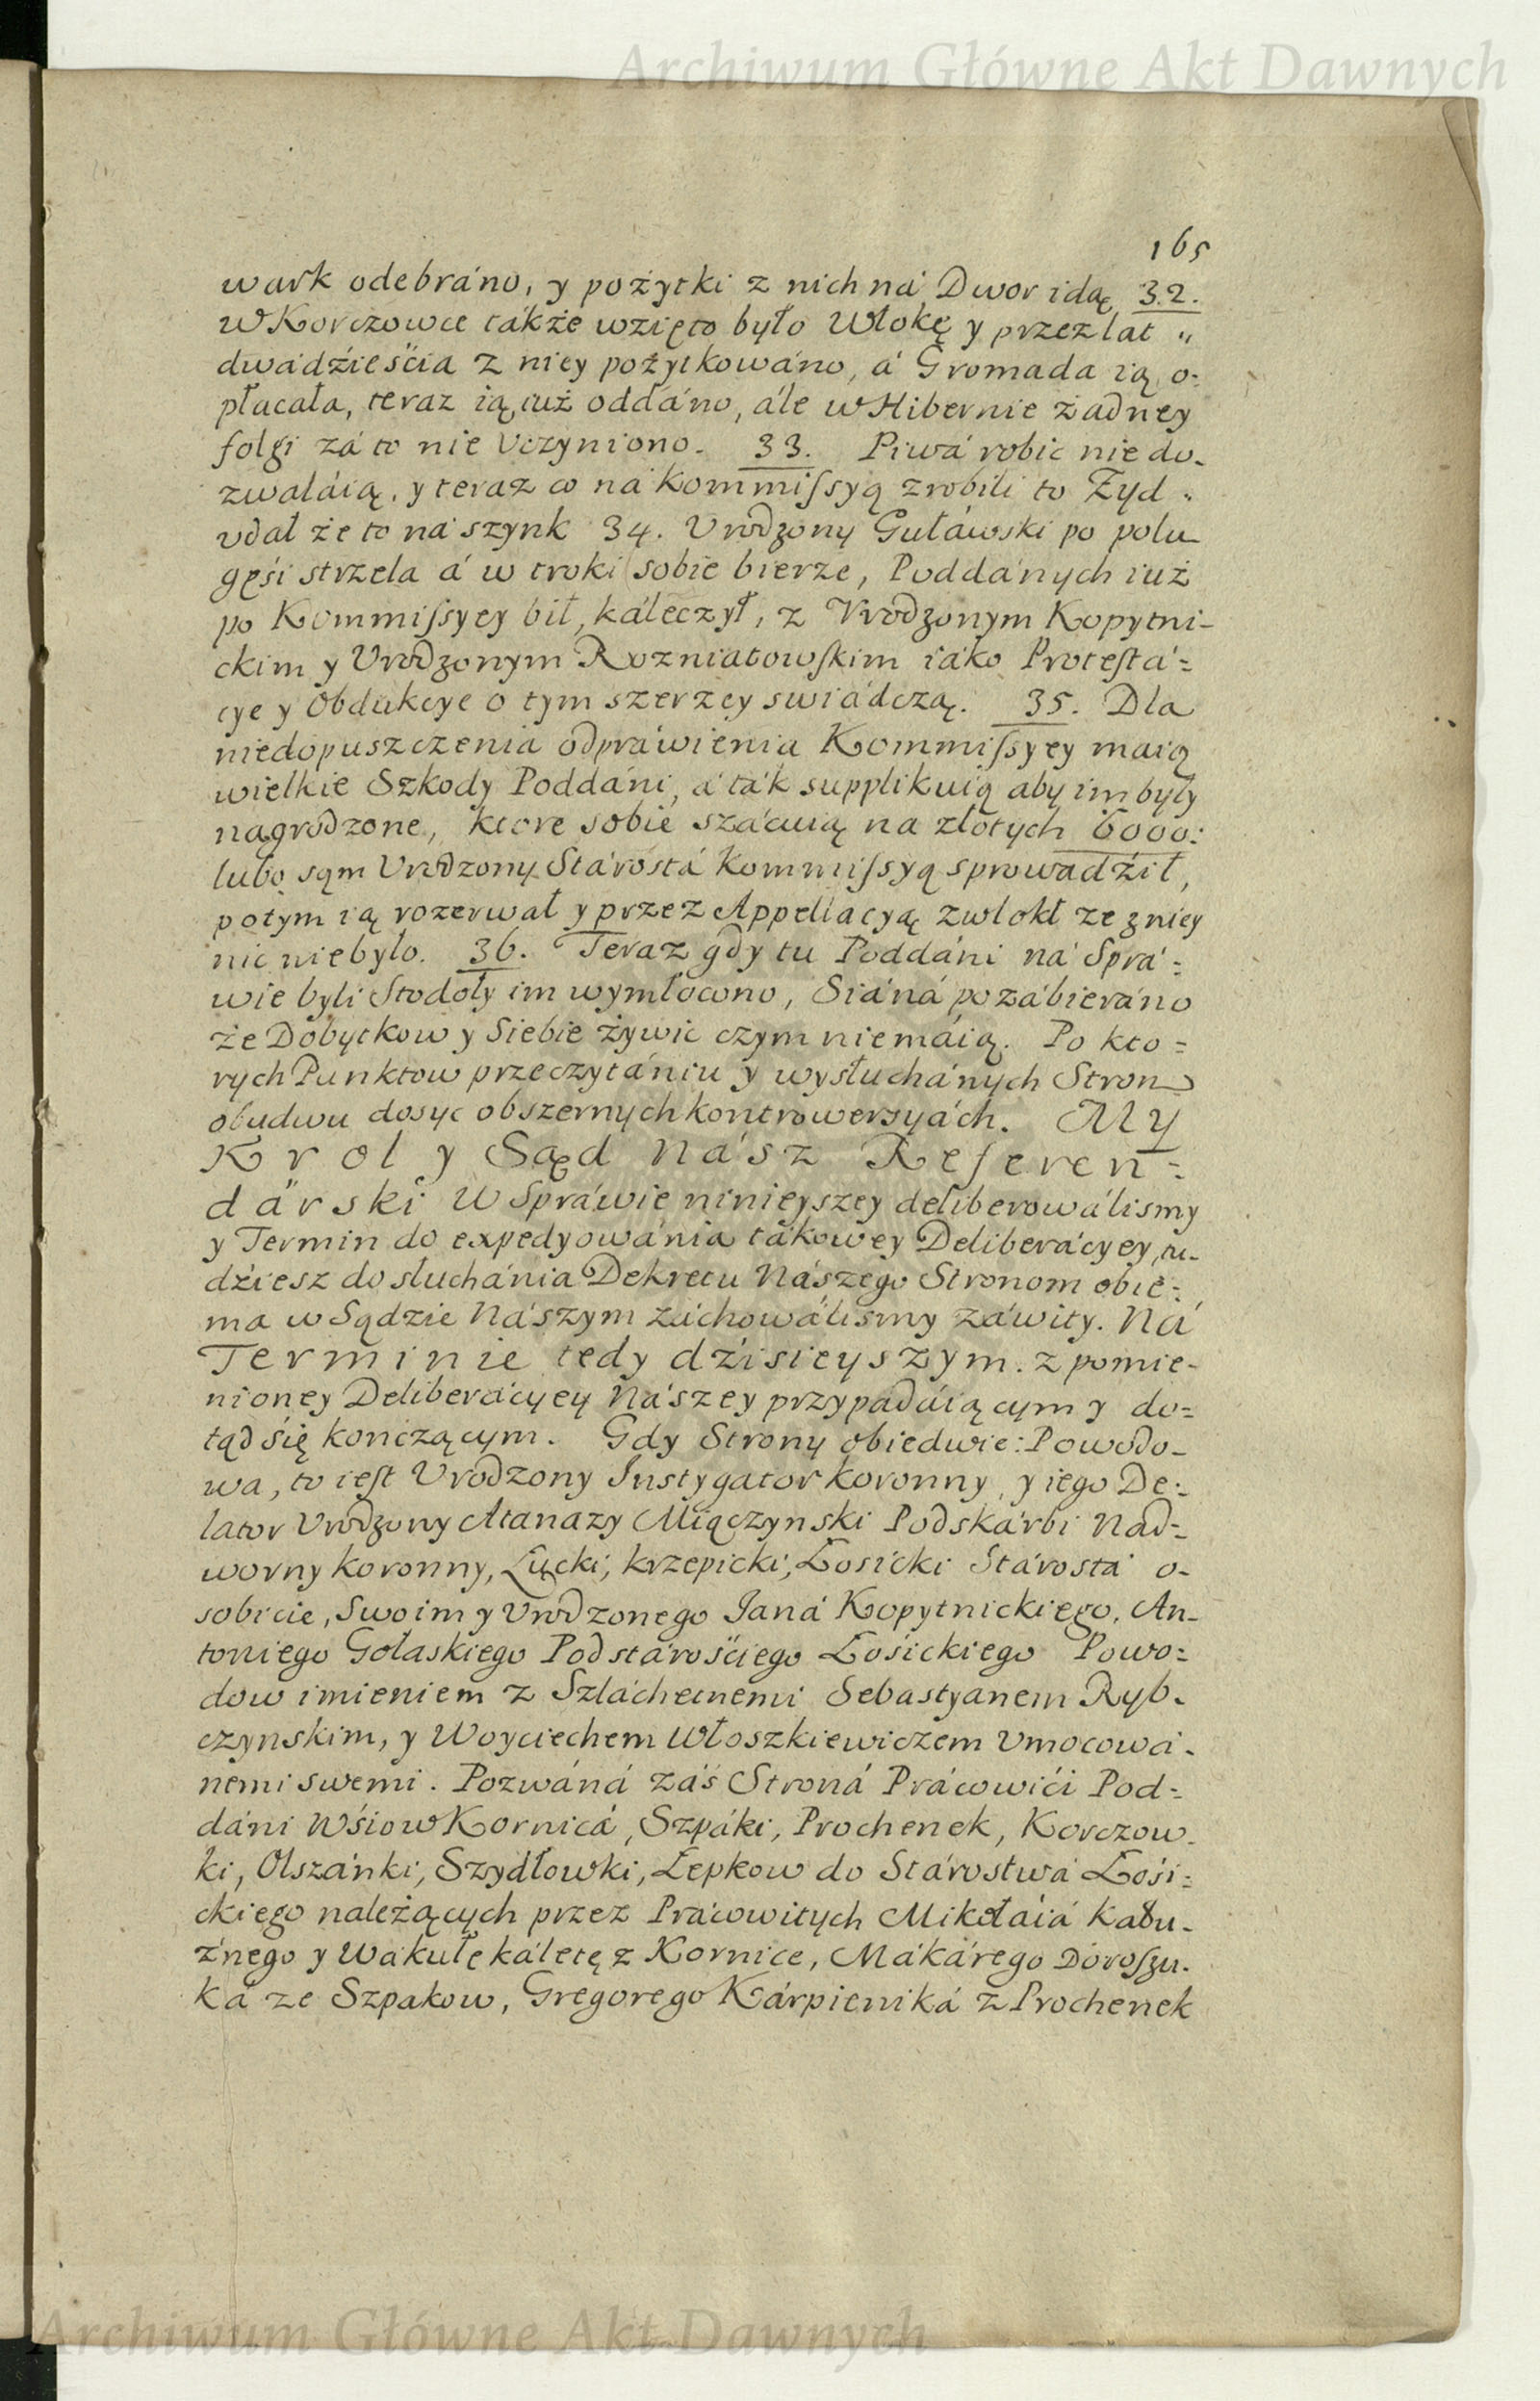 Archiwum Główne Akt Dawnych
165
wark odebráno, y pożytki z nich ná Dwor idą, 32.
w Korczowce tákże wzięto było Włokę y przez lat „
dwádźieśćia z niey pożytkowáno, á Gromada ią o-
płacała, teraz ią iuż oddáno, ále w Hibernie żadney
folgi zá to nie vczyniono. 33. Piwá robic nie do-
zwaláią, y teraz co ná Kommissyą zrobili to Żyd
vdał że to ná szynk 34. Vrodzony Gułáwski po polu
gęśi strzela á w troki sobie bierze, Poddánych iuż
po Kommissyey bił, káleczył, z Vrodzonym Kopytni-
ckim y Vrodzonym Rozniatowskim iáko Protestá=
cye y Obdukcye o tym szerzey swiádczą. 35. Dla
niedopuszczenia odpráwienia Kommissyey maią
wielkie Szkody Poddáni, á ták supplikuią aby im były
nagrodzone, ktore sobie szácuią na złotych 6000:
lubo sąm Vrodzony Stárostá Kommissyą sprowadźił,
potym ią rozerwał y przez Appellacyą zwlokł że z niey
nic niebyło. 36. Teraz gdy tu Poddáni ná Sprá=
wie byli Stodoły im wymłocono, Siáná pozábieráno
że Dobytkow y Siebie żywic czym niemáią. Po kto=
rych Punktow przeczytániu y wysłuchánych Stron
obudwu dosyc obszernych kontrowersyách. My
Krol y Sąd Nász Referen=
dárski W Spráwie ninieyszey deliberowálismy
y Termin do expedyowánia tákowey Deliberácyey, tu-
dźiesz do słuchánia Dekretu Nászego Stronom obie=
ma w Sądzie Nászym záchowálismy záwity. Ná
Terminie tedy dźisieyszym z pomie-
nioney Deliberácyey Nászey przypadáiącym y do=
tąd się konczącym. Gdy Strony obiedwie: Powodo-
wa, to iest Vrodzony Instygator koronny, y iego De=
lator Vrodzony Atanazy Miączynski Podskárbi Nad=
worny koronny, Łucki, krzepicki, Łosicki Stárostá o-
sobicie, Swoim y Vrodzonego Janá Kopytnickiego, An-
toniego Gołaskiego Podstárośćiego Łośickiego Powo=
dow imieniem z Szláchetnemi Sebastyanem Ryb-
czynskim, y Woyciechem Włoszkiewiczem Vmocowá-
nemi swemi. Pozwáná záś Stroná Prácowići Pod=
dáni Wśiow Kornicá, Szpáki, Prochenek, Korczow-
ki, Olszánki, Szydłowki, Łepkow do Stárostwá Łośi=
ckiego należących przez Prácowitych Mikołáiá Kału-
żnego y Wakułę káletę z Kornice, Mákárego Doroszu-
ká ze Szpakow, Gregorego Kárpieniká z Prochenek
Archiwum Główne Akt Dawnych